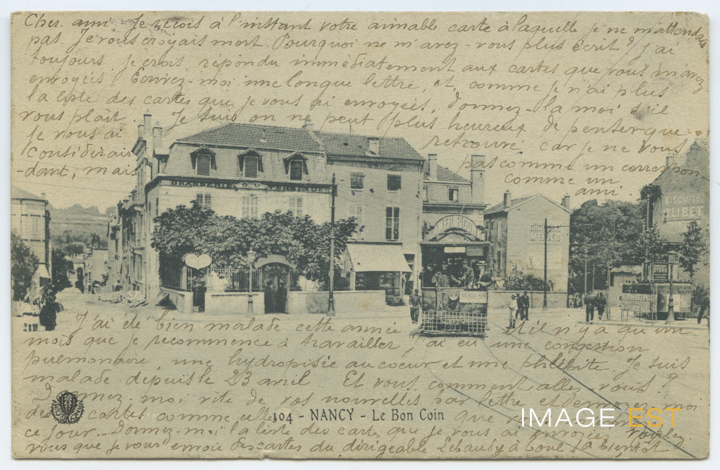 Cher ami. Je reçois à l'instant votre aimable carte à laquelle je ne m'attendais
pas. Je vous croyais mort. Pourquoi ne m'avez-vous plus écrit? J'ai
toujours, je crois, répondu immédiatement aux cartes que vous m'avez
envoyées. Ecrivez-moi une longue lettre, et comme je n'ai plus
la liste des cartes que je vous ai envoyées, donnez-la moi s'il
vous plait. Je suis on ne peut plus heureux de penser que
je vous ai retrouvé, car je ne vous
considérais pas comme un correspon-
dant, mais comme un
ami.
BRASSERIE
J'ai été bien malade cette année Il n'y a qu'un
mois que je recommence à travailler, j'ai eu une congestion
pulmonaire, une hydropisie au coeur et une phlébite. Je suis
malade depuis le 23 avril. Et vous, comment allez-vous?
Donnez-moi vite de vos nouvelles par lettre et
des cartes comme celle que
ce jour. Donnez-moi la liste des cartes que je vous ai envoyées. Voulez
vous que je vous envoie des cartes du dirigeable Lebaudy à Toul
104 - NANCY - Le Bon Coin
IMAGE EST